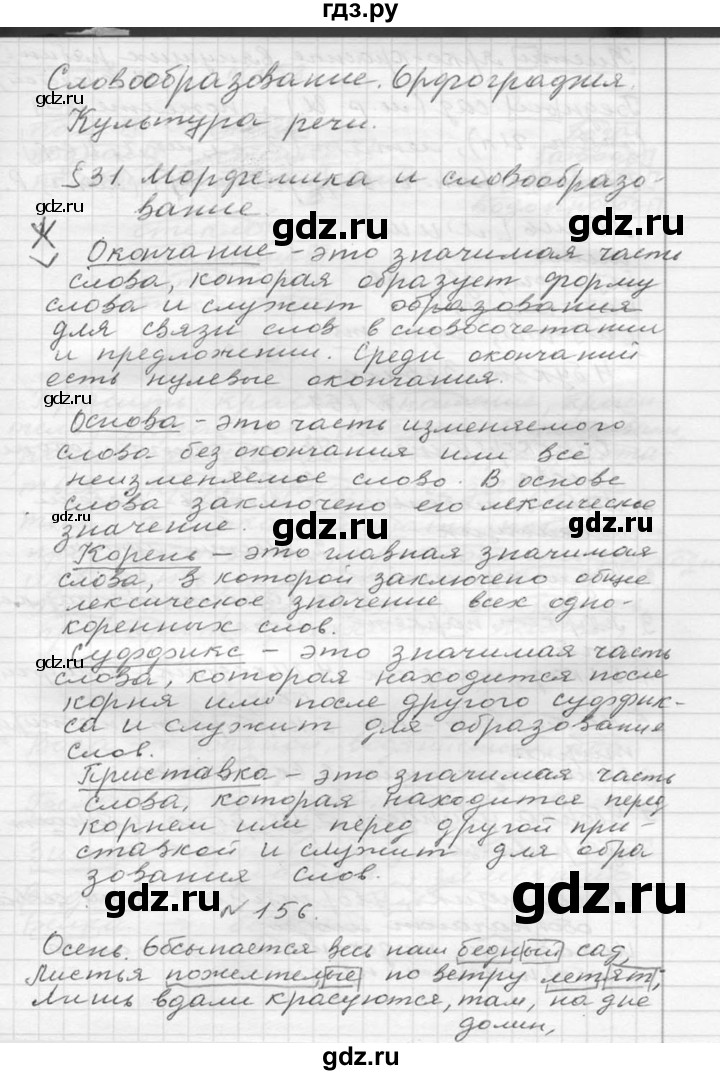 гдз.ру
Словообразование. Орфография.
Культура речи.
§31. Морфемика и словообразо-
вание
Окончание – это значимая часть
слова, которая образует форму
слова и служит образования
для связи слов в словосочетании
и предложении. Среди окончаний
есть нулевые окончания.
Основа – это часть изменяемого
слова без окончания или всё
неизменяемое слово. В основе
слова заключено его лексическое
значение.
Корень – это главная значимая
слова, в которой заключено общее
лексическое значение всех одно-
коренных слов.
Суффикс – это значимая часть
слова, которая находится после
корня или после другого суффик-
са и служит для образование
слов.
Приставка – это значимая часть
слова, которая находится перед
корнем или перед другой при-
ставкой и служит для обра
зования слов.
№ 156.
Осень. Обсыпается весь наш бедный сад,
Листья пожелтелые по ветру летят;
Лишь вдали красуются, там, на дне
долин,
gdz.ru